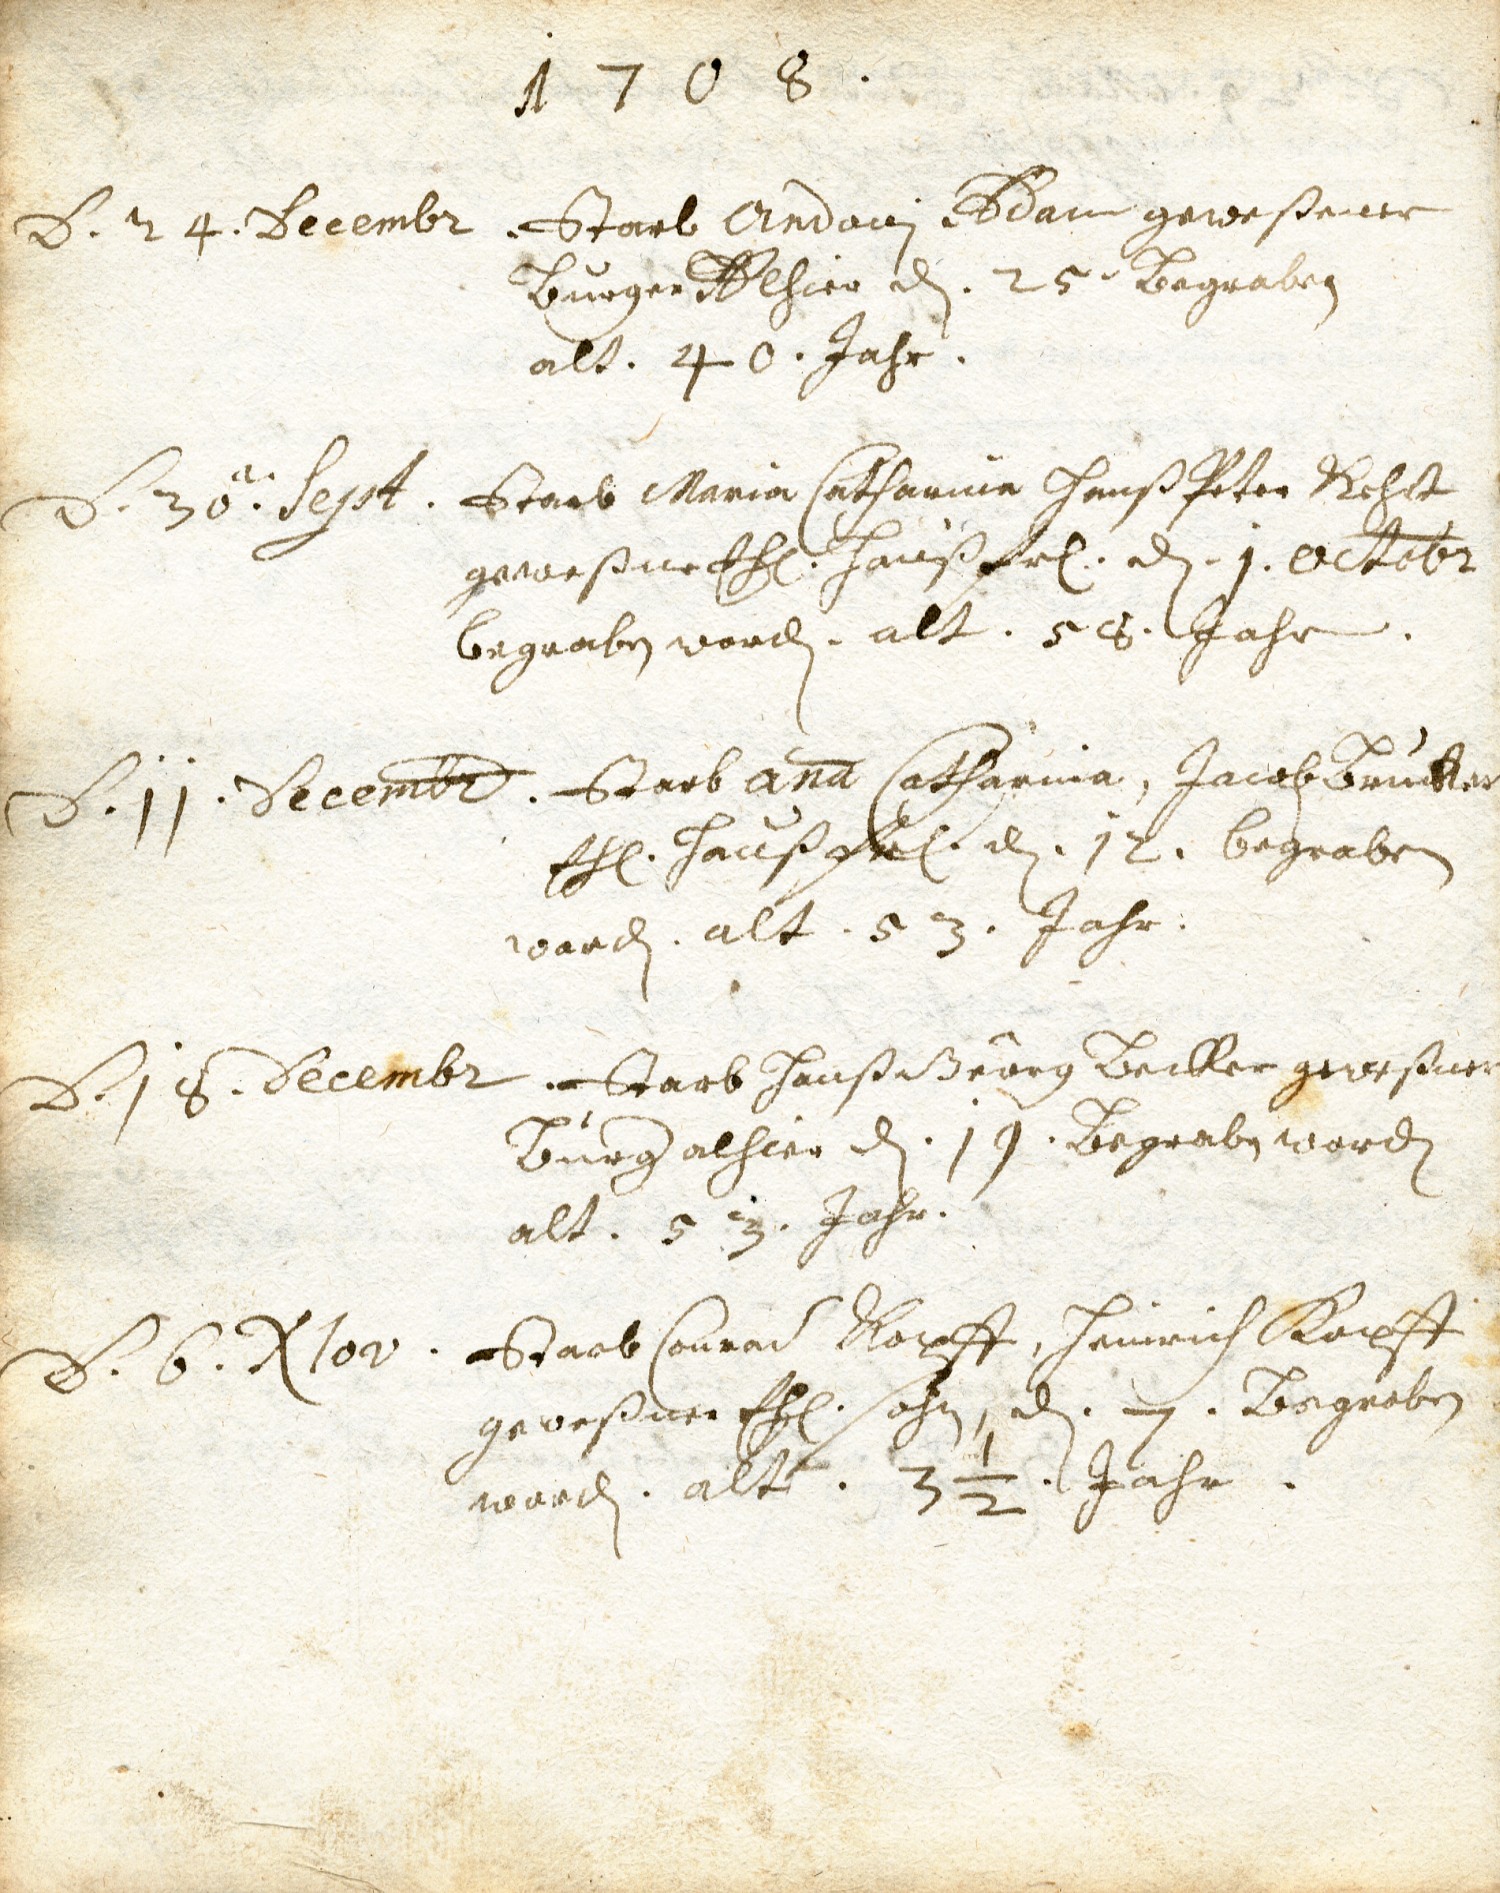 1708.
D. 24. Decembr. Starb Andoni Adam geweßener
Burger Alhier d. 25. Begraben
alt. 40. Jahr.
D. 30. Sept. Starb Maria Catharina Hanß Peter
geweßne Ehl. Haußfrl. d. 1. Octobr
begraben word. alt. 58. Jahr.
D. 11. Decembr. Starb Ana Catharina, Jacob Brucker
Ehl. Haußfrl. d. 12. begraben
word. alt. 53. Jahr.
D. 18. Decembr. Starb Hanß Georg Becker geweßner
Burg alhier d. 19. Begraben word
alt. 53. Jahr.
D. 6. Starb Conrad Kopff, Heinrich Kopff
geweßner Ehl. Sohn, d. 7. Begraben
word. alt. 3 1/2. Jahr.